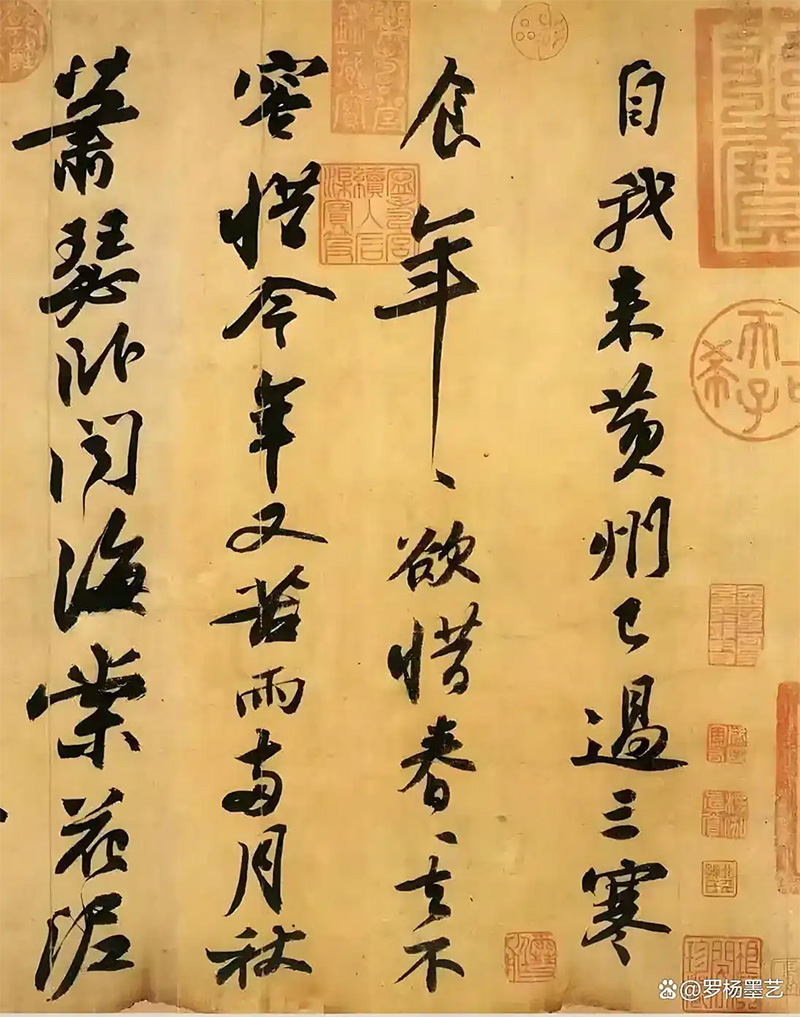 自我来黄州已過三寒
食年〻欲惜春〻去不
容惜今年又苦雨兩月秋
蕭瑟卧聞海棠花泥
@罗杨墨艺